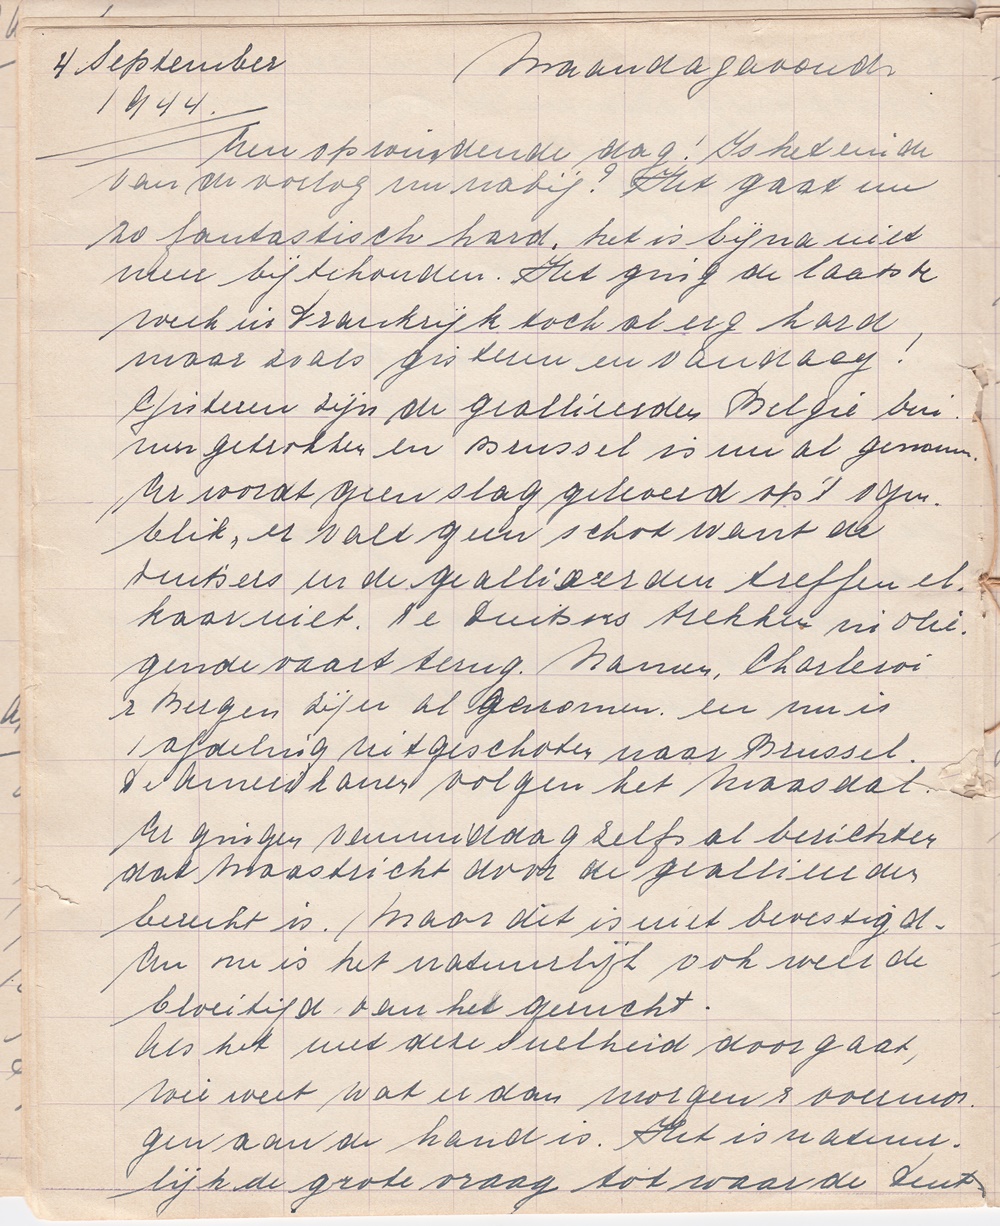 4 September Maandagavond
1944.
Een opwindende dag! Is het einde
van de oorlog nu nabij? Het gaat nu
zo fantastisch hard, het is bijna niet
meer bij te houden. Het ging de laatste
week in Frankrijk toch al erg hard,
maar zoals gisteren en vandaag!
Gisteren zijn de geallieerden België bin-
nengetrokken en Brussel is nu al genomen.
Er wordt geen slag geleverd op 't ogen-
blik, er valt geen schot want de
Duitsers en de geallieerden treffen el-
kaar niet. De Duitsers trekken in vlie-
gende vaart terug. Namen, Charleroi
& Bergen zijn al genomen. en nu is
1 afdeling uitgeschoten naar Brussel.
De Amerikanen volgen het Maasdal.
Er gingen vanmiddag zelfs al berichten
dat Maastricht door de geallieerden
bereikt is. Maar dit is niet bevestigd.
En nu is het natuurlijk ook weer de
bloeitijd van het gerucht.
Als het met deze snelheid doorgaat,
wie weet wat er dan morgen & overmor-
gen aan de hand is. Het is natuur-
lijk de grote vraag tot waar de Duit-